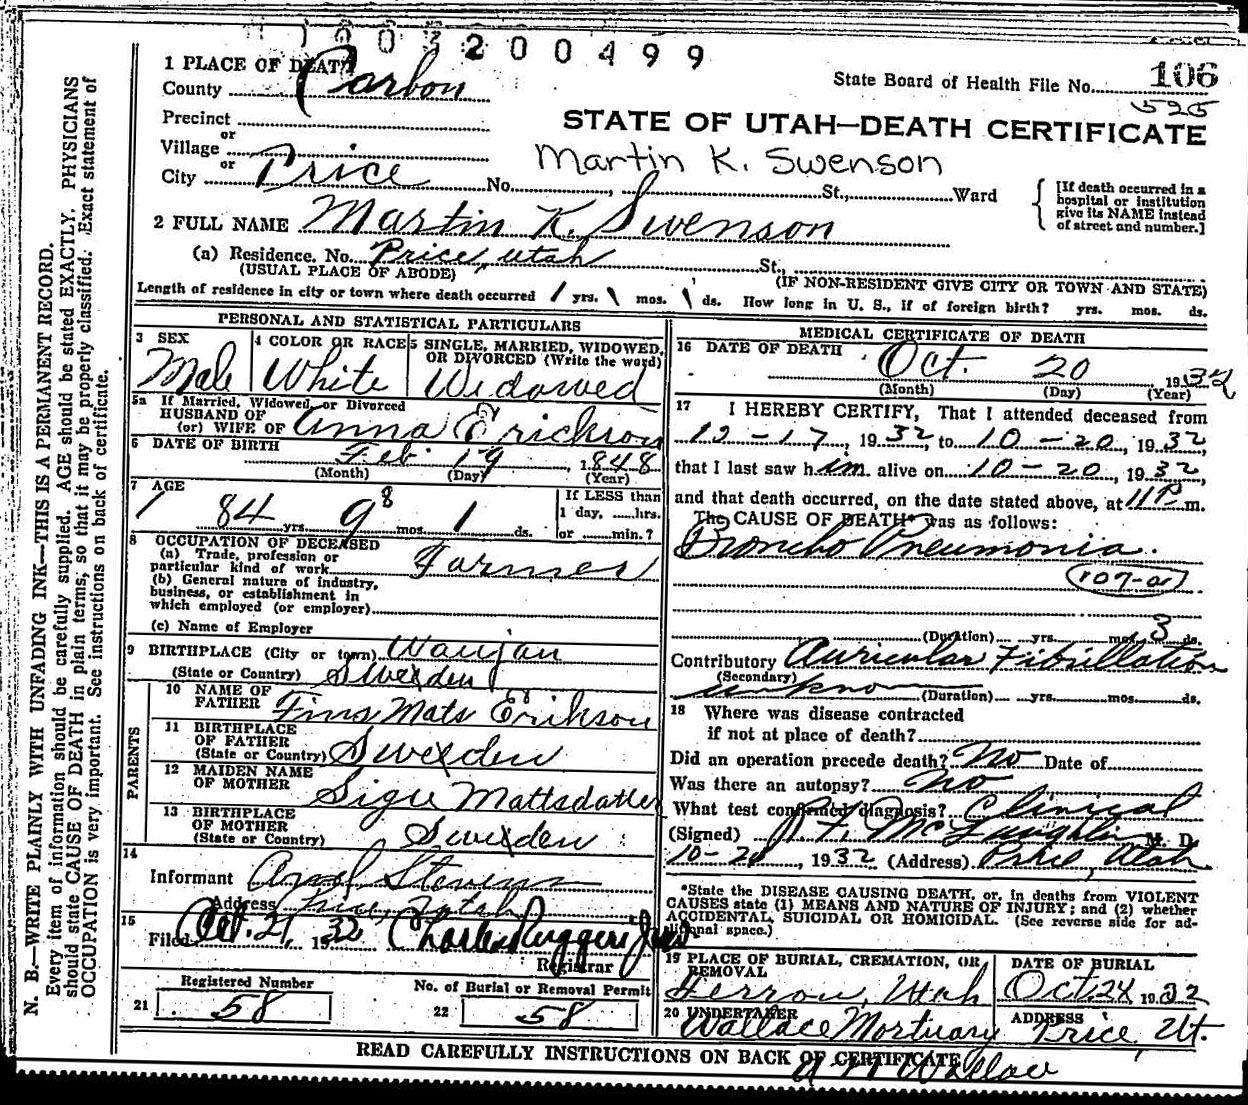 1003200499
1 PLACE OF DEATH
County Carbon
State Board of Health File No. 106
525
Precinct
or
STATE OF UTAH—DEATH CERTIFICATE
Village
or
Martin K. Swenson
City Price No. St., Ward
[If death occurred in a hospital or institution give its NAME instead of street and number.]
2 FULL NAME Martin K. Swenson
(a) Residence. No. Price, Utah St.,
(USUAL PLACE OF ABODE) (IF NON-RESIDENT GIVE CITY OR TOWN AND STATE)
Length of residence in city or town where death occurred 1 yrs. \ mos. \ ds. How long in U. S., if of foreign birth? yrs. mos. ds.
PERSONAL AND STATISTICAL PARTICULARS
3 SEX 4 COLOR OR RACE 5 SINGLE, MARRIED, WIDOWED, OR DIVORCED (Write the word)
Male White Widowed
5a If Married, Widowed, or Divorced
HUSBAND OF
(or) WIFE OF Anna Erickson
6 DATE OF BIRTH Feb 19, 1848
(Month) (Day) (Year)
7 AGE
84 yrs. 9 8 mos. 1 ds.
If LESS than
1 day, hrs.
or min.?
8 OCCUPATION OF DECEASED
(a) Trade, profession or
particular kind of work Farmer
(b) General nature of industry,
business, or establishment in
which employed (or employer)
(c) Name of Employer
9 BIRTHPLACE (City or town)
(State or Country) Sweden
PARENTS
10 NAME OF
FATHER Fins Mats Erikson
11 BIRTHPLACE
OF FATHER
(State or Country) Sweden
12 MAIDEN NAME
OF MOTHER Mattsdatter
13 BIRTHPLACE
OF MOTHER
(State or Country) Sweden
14
Informant Stevens
Address Price, Utah
15
Filed Oct. 21, 1932 Charles Ruggeri
Registrar
Registered Number
21 58
No. of Burial or Removal Permit
22 58
MEDICAL CERTIFICATE OF DEATH
16 DATE OF DEATH Oct. 20 1932
(Month) (Day) (Year)
17 I HEREBY CERTIFY, That I attended deceased from
1932, to 10-20, 1932
that I last saw him alive on 10-20, 1932,
and that death occurred, on the date stated above, at 11 P m.
The CAUSE OF DEATH* was as follows:
Broncho Pneumonia.
107-a
(Duration) yrs. mos. 3 ds.
Contributory Auricular Fibrillation
(Secondary)
unknown (Duration) yrs. mos. ds.
18 Where was disease contracted
if not at place of death?
Did an operation precede death? No Date of
Was there an autopsy? No
What test confirmed diagnosis? Clinical
(Signed) McLaughlin M. D.
10-20, 1932 (Address) Price, Utah
*State the DISEASE CAUSING DEATH, or, in deaths from VIOLENT
CAUSES state (1) MEANS AND NATURE OF INJURY; and (2) whether
ACCIDENTAL, SUICIDAL OR HOMICIDAL. (See reverse side for ad-
ditional space.)
19 PLACE OF BURIAL, CREMATION, OR REMOVAL DATE OF BURIAL
Ferron, Utah Oct. 24 1932
20 UNDERTAKER ADDRESS
Wallace Mortuary Price, Ut.
READ CAREFULLY INSTRUCTIONS ON BACK OF CERTIFICATE
Wallace
N. B.—WRITE PLAINLY WITH UNFADING INK—THIS IS A PERMANENT RECORD.
Every item of information should be carefully supplied. AGE should be stated EXACTLY. PHYSICIANS
should state CAUSE OF DEATH in plain terms, so that it may be properly classified. Exact statement of
OCCUPATION is very important. See instructions on back of certificate.